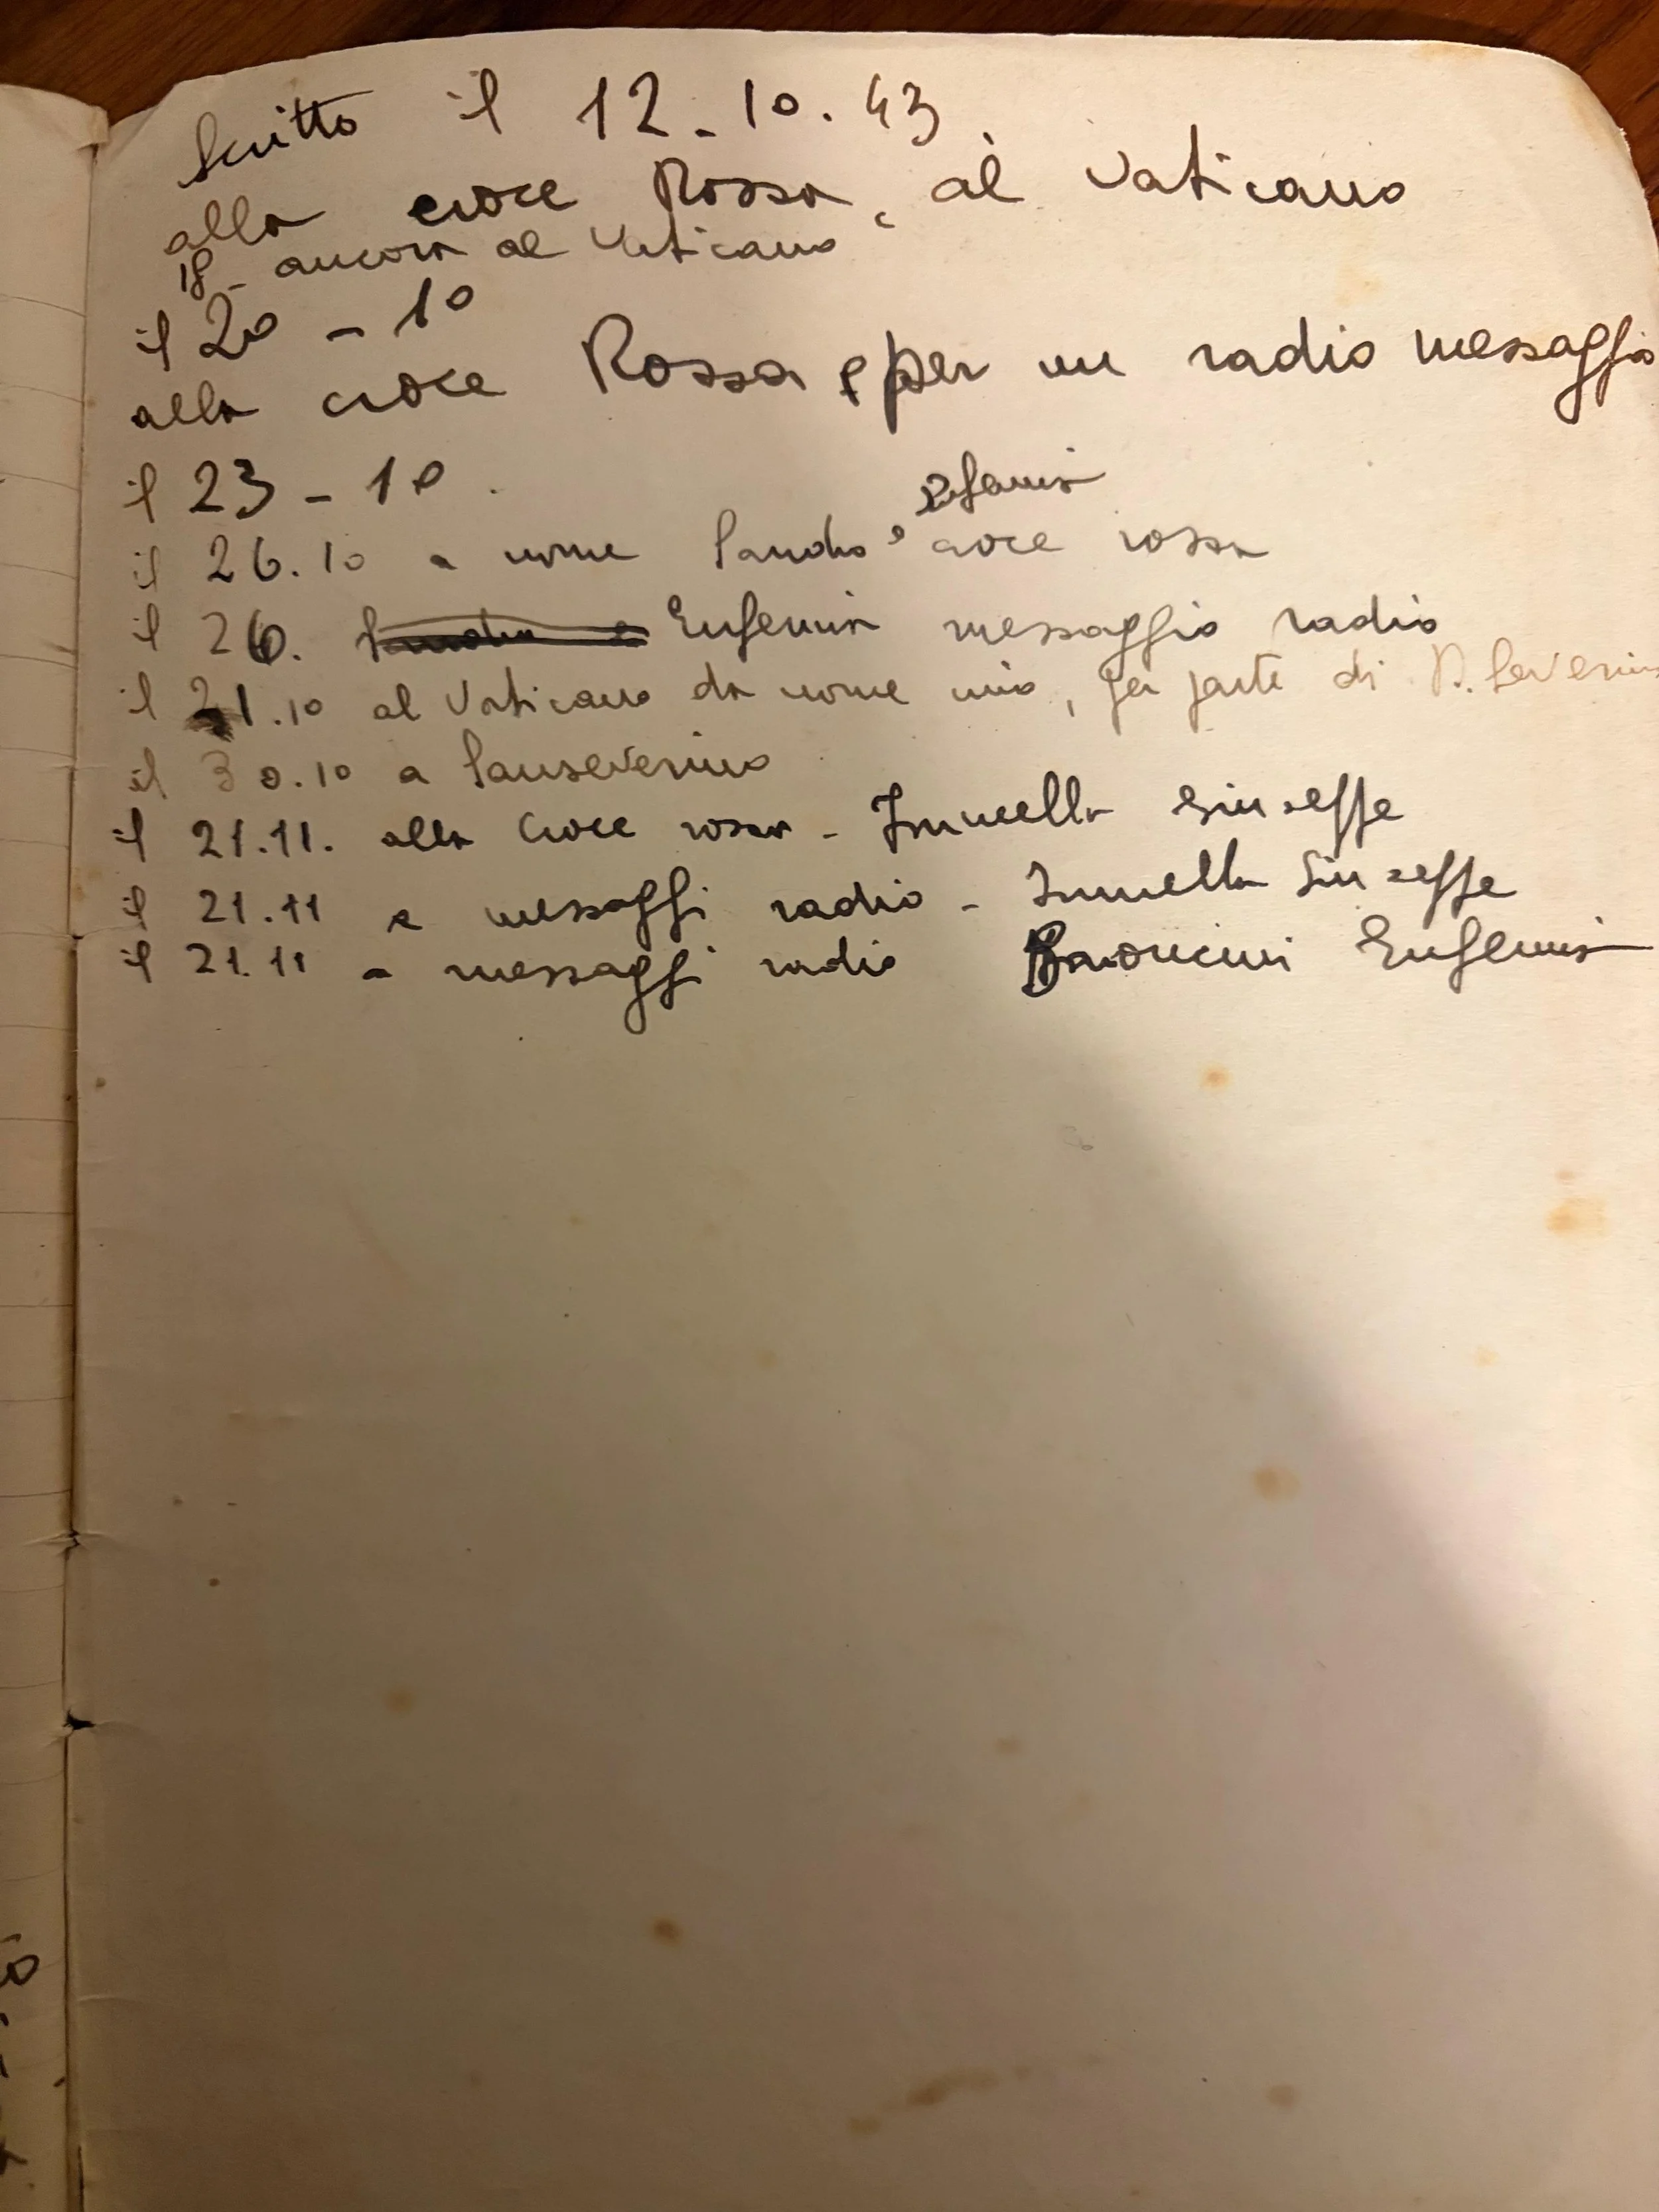 Scritto il 12-10.43.
alla croce Rossa, al Vaticano
18- ancora al Vaticano
il 20-10
alla croce Rossa e per un radio messaggio
il 23-10.
Eufemia
il 26.10 a nome Sandro e croce rossa
il 26. Eufemia messaggio radio
il 21.10 al Vaticano da nome mio, per parte di S. Severino
il 30.10 a Sanseverino
il 21.11. alla Croce rossa - Giuseppe
il 21.11 messaggi radio - Giuseppe
il 21.11 - messaggi radio Eufemia